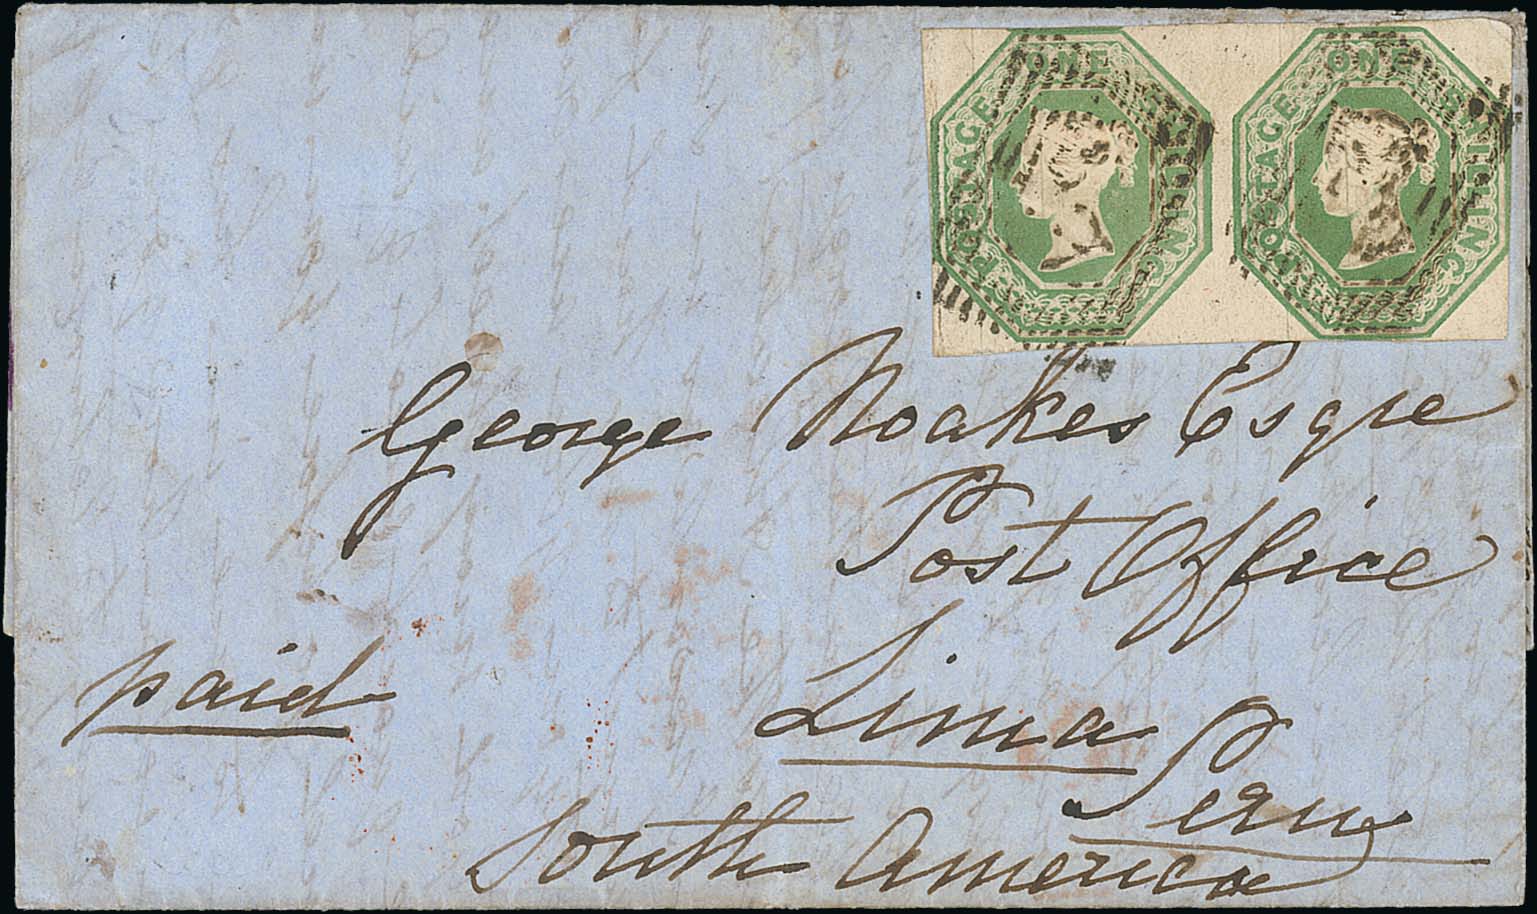 POSTAGE ONE SHILLING
POSTAGE ONE SHILLING
George Noakes Esqre
Post Office
Lima
Peru
South America
paid